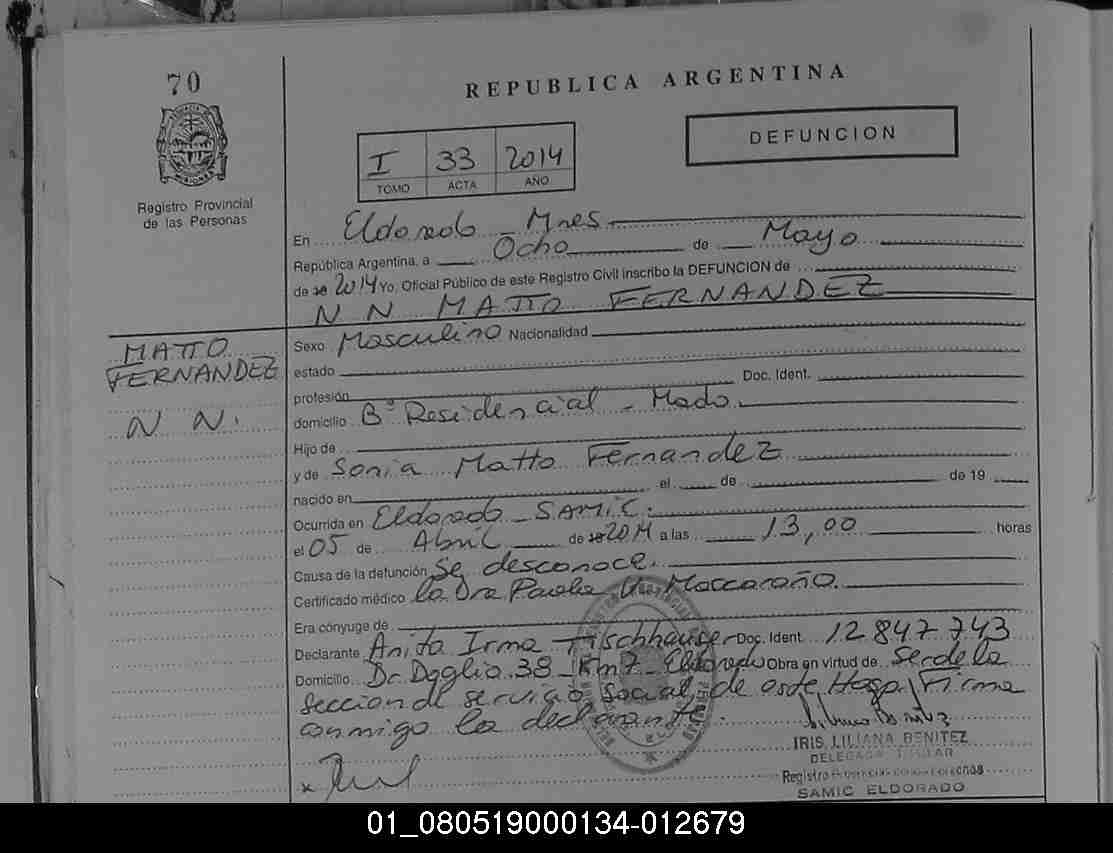 70
REPUBLICA ARGENTINA
DEFUNCION
I 33 2014
TOMO ACTA AÑO
Registro Provincial
de las Personas
En Eldorado - Mnes.
República Argentina, a Ocho de Mayo
de 2014 Yo, Oficial Público de este Registro Civil inscribo la DEFUNCION de
N N MATTO FERNANDEZ
MATTO
FERNANDEZ
N N.
Sexo Masculino Nacionalidad
estado
profesión Doc. Ident.
domicilio Bº Residencial - Mado.
Hijo de
y de Sonia Matto Fernandez
nacido en el de de 19
Ocurrida en Eldorado - SAMIC.
el 05 de Abril de 2014 a las 13,00 horas
Causa de la defunción Se desconoce.
Certificado médico la Dra Paola V.
Era cónyuge de
Declarante Anita Irma Fischhauser Doc. Ident 12847743
Domicilio Dr. Daglio 38 Km7 Eldorado Obra en virtud de Ser de la
Seccion de servicio Social de este Hosp. Firma
conmigo la declarante.
IRIS LILIANA BENITEZ
DELEGADA TITULAR
Registro Provincial de las Personas
SAMIC ELDORADO
01_080519000134-012679